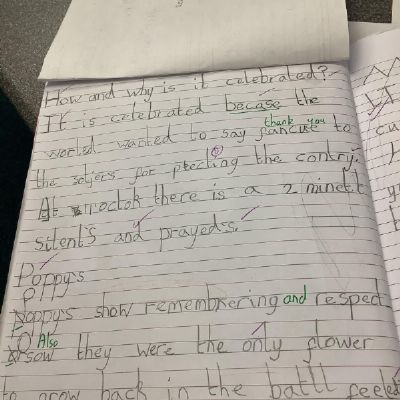 How and why is it celebrated?
It is celebrated becase the
world wanted to say thank you to
the soljers for ptecting the contry.
At there is a 2 minet
silents and prayeds.
Poppy's
Poppy's show remembnering and respect
Also they were the only flower
to grow back in the batll feeled